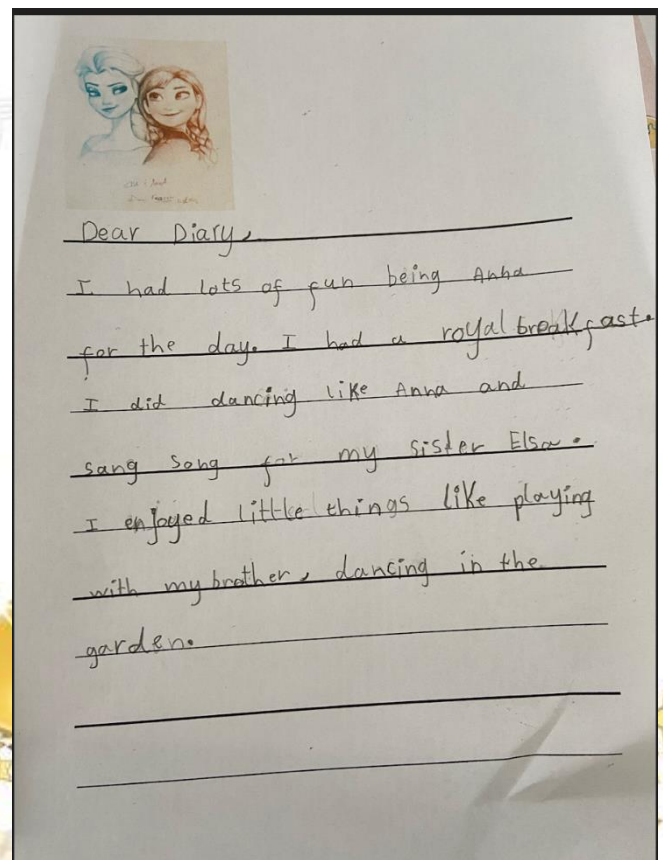 Dear Diary,
I had lots of fun being Anna
for the day. I had a royal breakfast.
I did dancing like Anna and
sang song for my sister Elsa.
I enjoyed little things like playing
with my brother, dancing in the
garden.